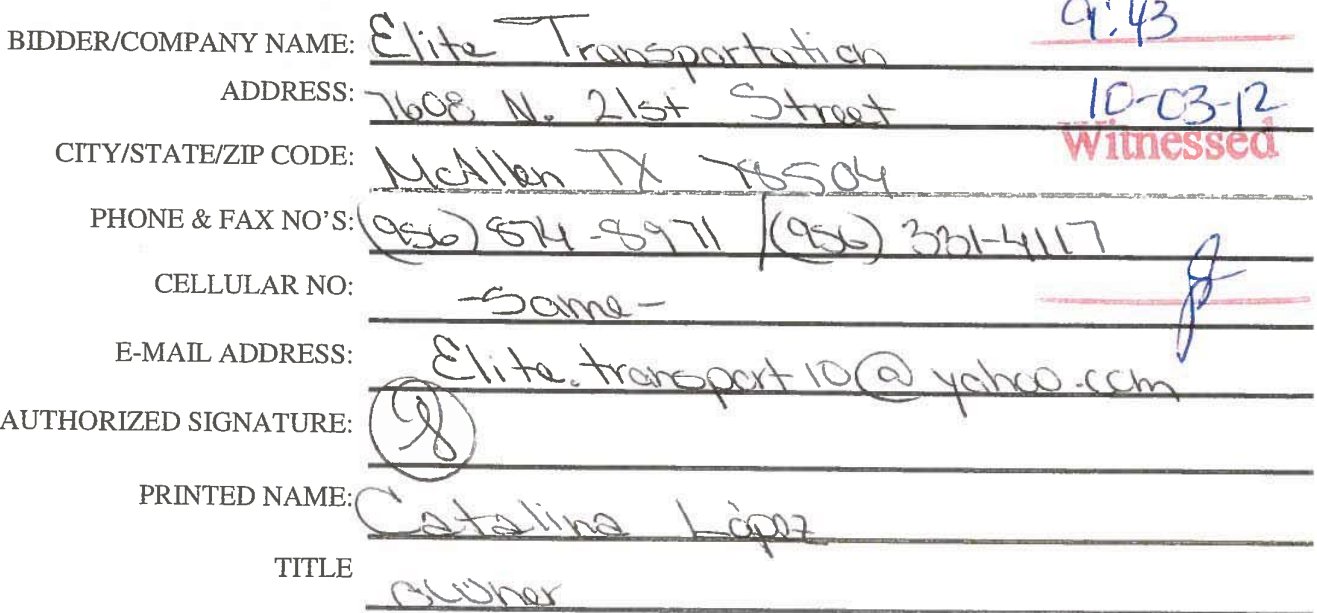 9:43
BIDDER/COMPANY NAME: Elite Transportation
ADDRESS: 7608 N. 21st Street
10-03-12
Witnessed
CITY/STATE/ZIP CODE: McAllen TX 78504
PHONE & FAX NO'S: (956) 874-8971 | (956) 331-4117
CELLULAR NO: -Same-
E-MAIL ADDRESS: Elite.transport10@yahoo.com
AUTHORIZED SIGNATURE:
PRINTED NAME: Catalina López
TITLE owner